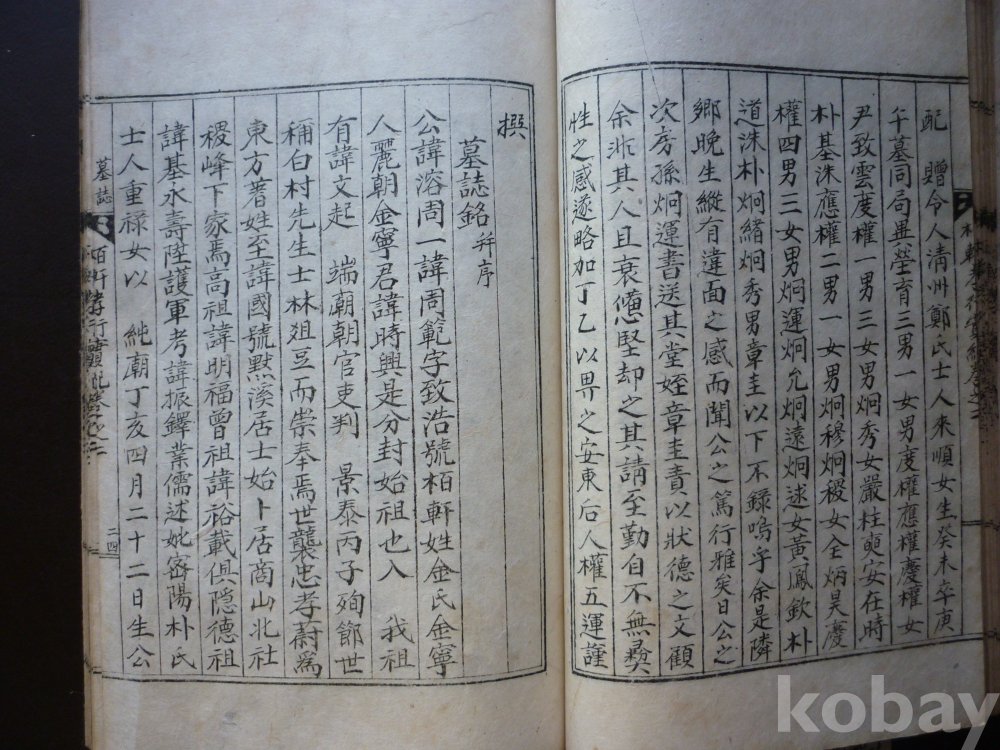 配 贈令人淸州鄭氏士人來順女生癸未卒庚
午墓同局異塋育三男一女男度權應權慶權女
尹致雲度權一男三女男炯秀女嚴柱奭安在時
朴基洙應權二男一女男炯穆炯稷女全炳昊慶
權四男三女男炯運炯允炯遠炯逑女黃鳳欽朴
道洙朴炯緖炯秀男章圭以下不錄嗚乎余是隣
鄕晩生縱有違面之感而聞公之篤行雅矣日公之
次房孫炯運書送其堂姪章圭責以狀德之文顧
余非其人且衰憊堅却之其請至勤自不無彛
性之感遂略加丁乙以畀之安東后人權五運謹
撰
墓誌銘 并序
公諱溶周一諱周範字致浩號栢軒姓金氏金寧
人麗朝金寧君諱時興是分封始祖也入 我祖
有諱文起 端廟朝官吏判 景泰丙子殉節世
稱白村先生士林俎豆而崇奉焉世襲忠孝蔚爲
東方著姓至諱國號默溪居士始卜居商山北社
稷峰下家焉高祖諱明福曾祖諱裕載俱隱德祖
諱基永壽陞護軍考諱振鐸業儒述妣密陽朴氏
士人重祿女以 純廟丁亥四月二十二日生公
墓誌
二四
kobay